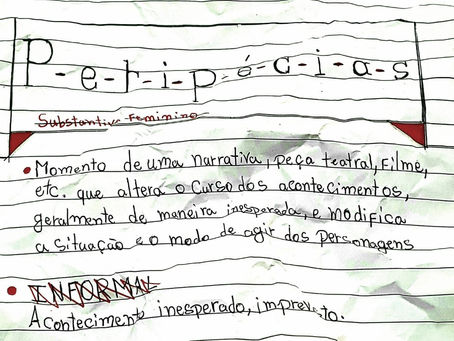 P-e-r-i-p-é-c-i-a-s
Substantivo Feminino
• Momento de uma narrativa, peça teatral, Filme,
etc. que altera o curso dos acontecimentos,
geralmente de maneira inesperada, e modifica
a situação e o modo de agir dos personagens
• INFORMAL
Acontecimento inesperado, imprevisto.